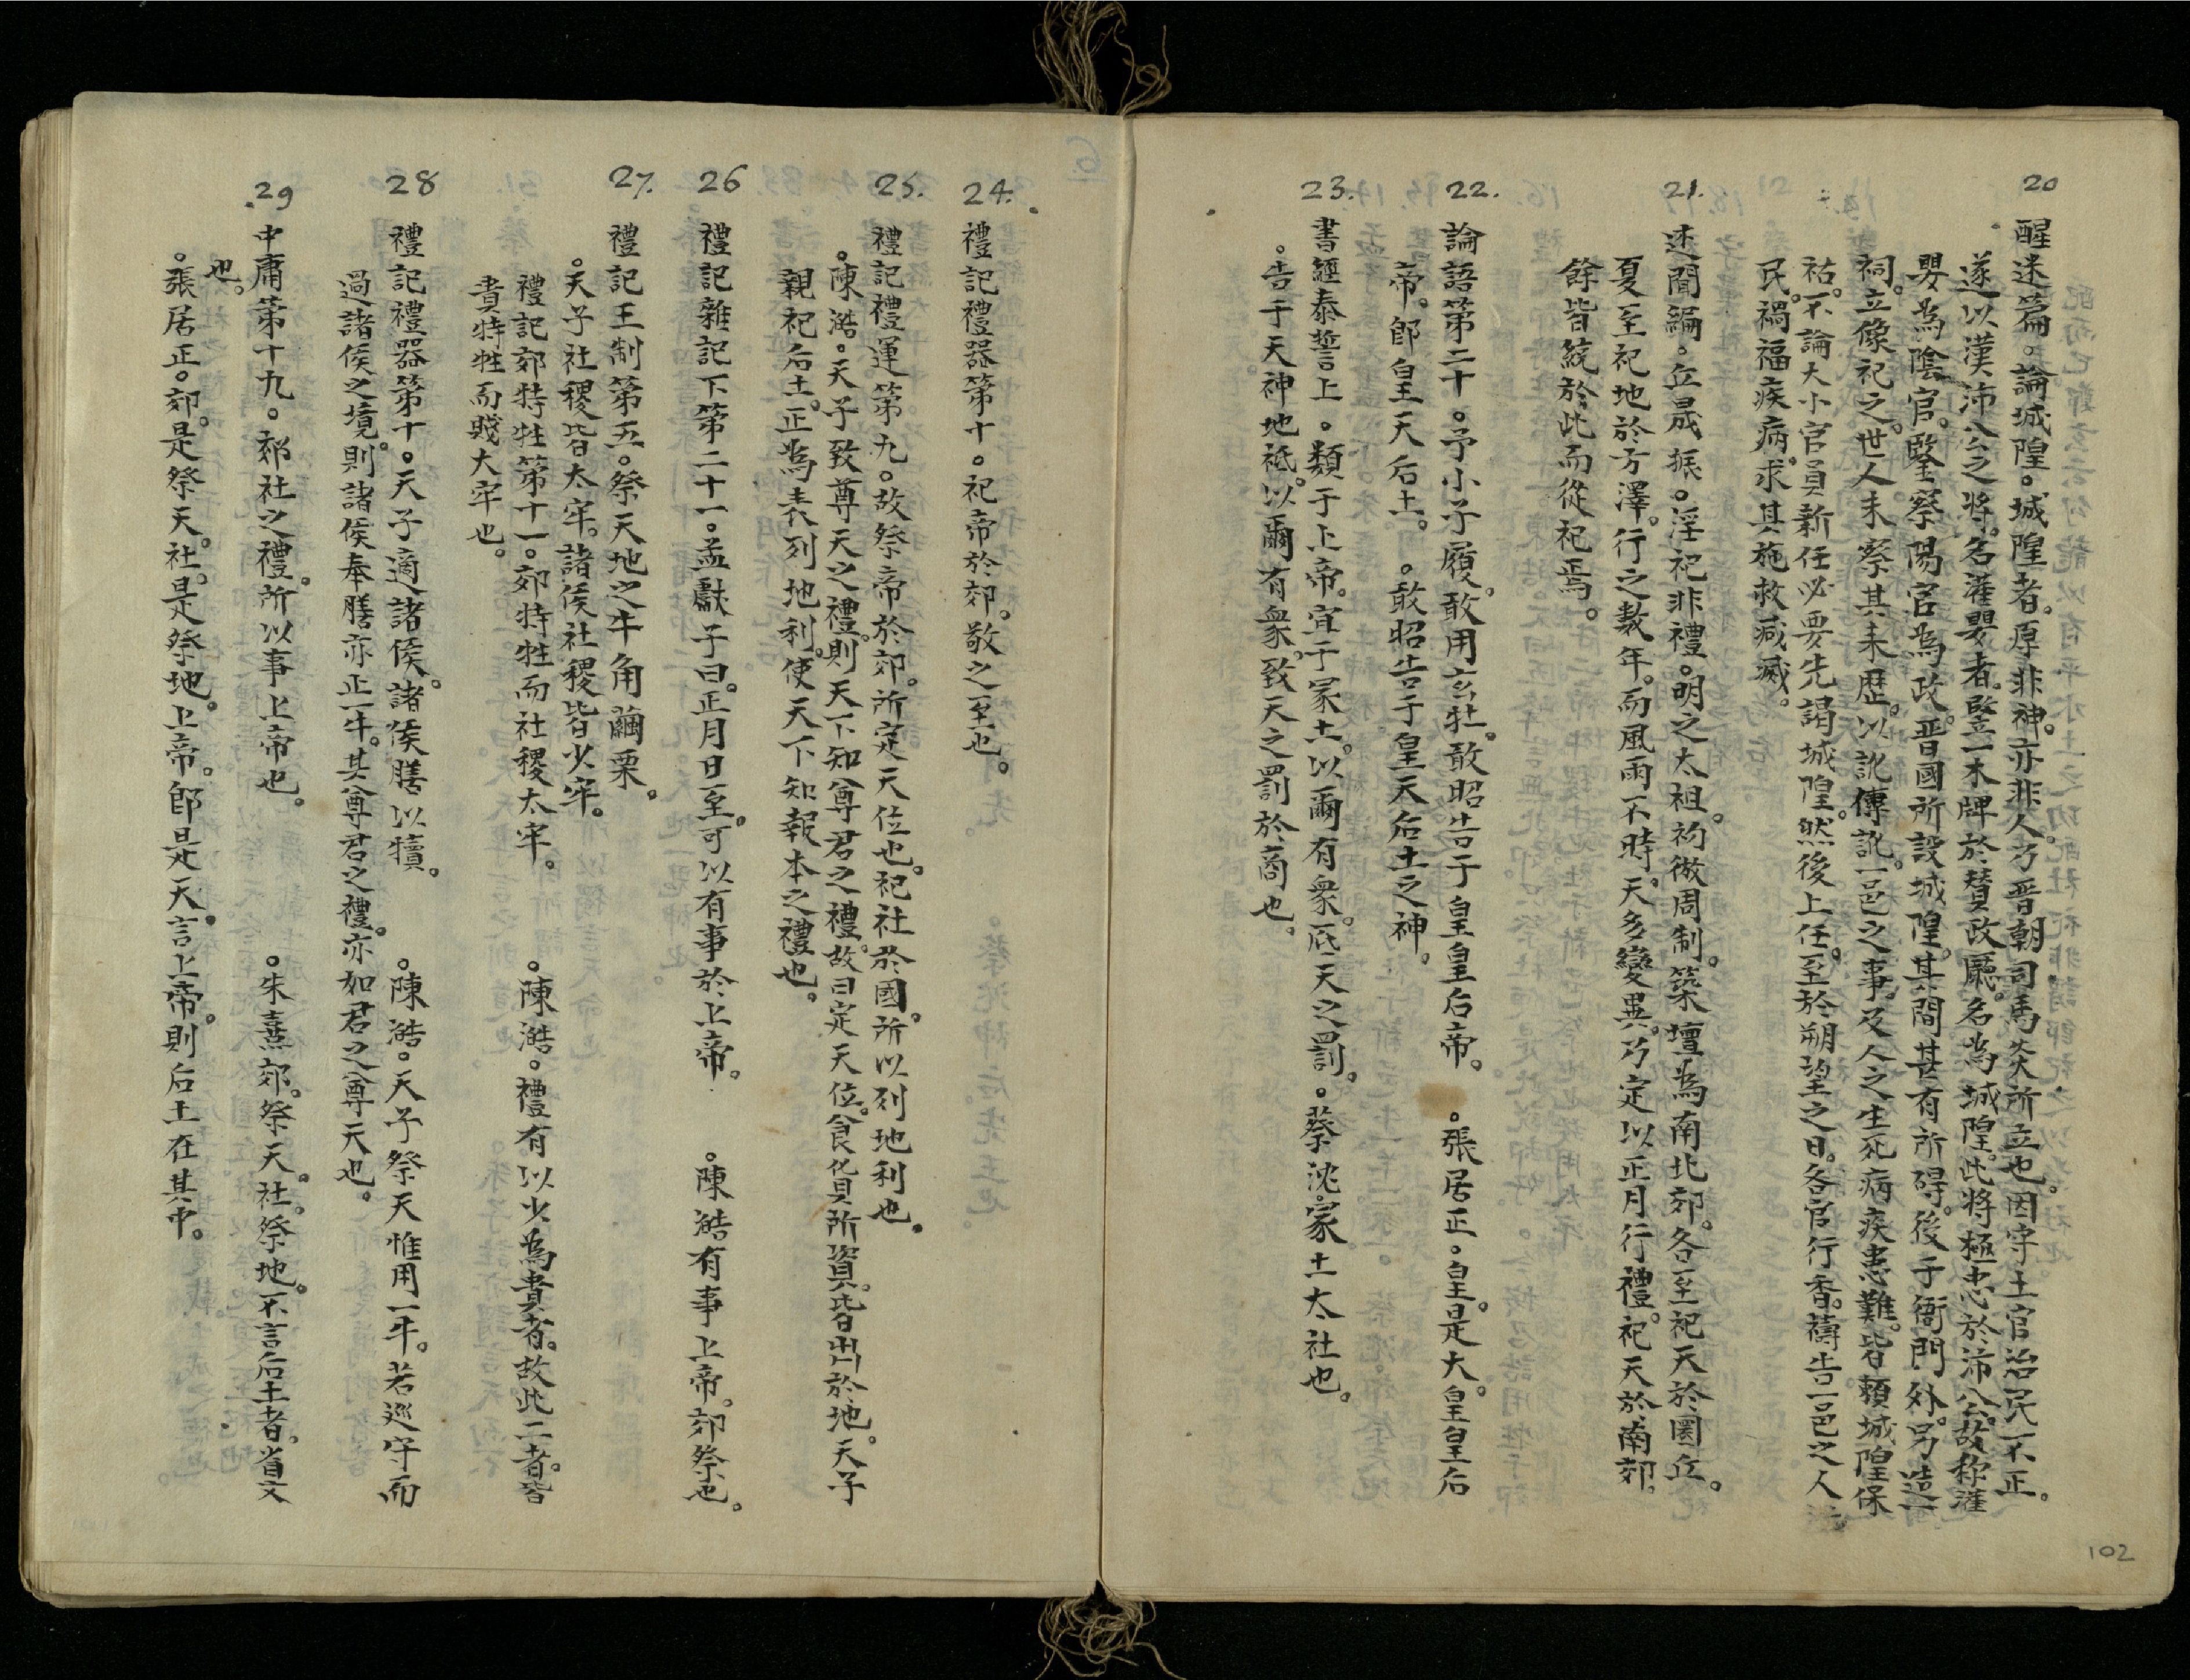 20
醒迷篇。論城隍。城隍者。原非神。亦非人。乃晋朝司馬炎所立也。因守土官治民不正。
遂以漢沛公之將。名灌嬰者。竪一木牌於贊政廳。名為城隍。此將極忠於沛公。故称灌
嬰為陰官。鑒察陽官為政。晋國所設城隍。其間甚有所碍。後于衙門外。另造一
祠。立像祀之。世人未察其未歷。以訛傳訛。一邑之事。及人之生死病疾患難。皆頼城隍保
祐。不論大小官員新任必要先謁城隍。然後上任。至於朔望之日。各官行香。禱告一邑之人
民。禍福疾病。求其施救减滅。
21.
述聞編。丘晟振。淫祀非禮。明之太祖。初倣周制。築壇為南北郊。冬至祀天於圜丘。
夏至祀地於方澤。行之数年。而風雨不時。天多變異。乃定以正月行禮。祀天於南郊。
餘皆統於此而從祀焉。
22.
論語第二十。予小子履。敢用玄牡。敢昭告于皇皇后帝。 。張居正。皇。是大。皇皇后
帝。卽皇天后土。 。敢昭告于皇天后土之神。
23.
書經泰誓上。類于上帝。宜于冢土。以爾有衆。厎天之罰。。蔡沈。冢土大社也。
。告于天神地祗。以爾有衆。致天之罰於商也。
102
24.
禮記禮器第十。祀帝於郊。敬之至也。
25.
禮記禮運第九。故祭帝於郊。所定天位也。祀社於國。所以列地利也。
。陳澔。天子致尊天之禮。則天下知尊君之禮。故曰定天位。食貨所資。皆出於地。天子
親祀后土。正為表列地利。使天下知報本之禮也。
26
禮記雜記下第二十一。孟獻子曰。正月日至。可以有事於上帝。 。陳澔有事上帝。郊祭也。
27.
禮記王制第五。祭天地之牛角繭栗。
。天子社稷皆太牢。諸侯社稷皆少牢。
禮記郊特牲第十一。郊特牲而社稷太牢。 。陳澔。禮有以少為貴者。故此二者。皆
貴特牲而賤大牢也。
28
禮記禮器第十。天子適諸侯。諸侯膳以犢。 。陳澔。天子祭天惟用一牛。若巡守而
過諸侯之境。則諸侯奉膳亦止一牛。其尊君之禮。亦如君之尊天也。
29
中庸第十九。郊社之禮。所以事上帝也。 。朱熹郊。祭天。社。祭地。不言后土者。省文
也。
。張居正。郊。是祭天。社。是祭地。上帝。卽是天。言上帝。則后土在其中。